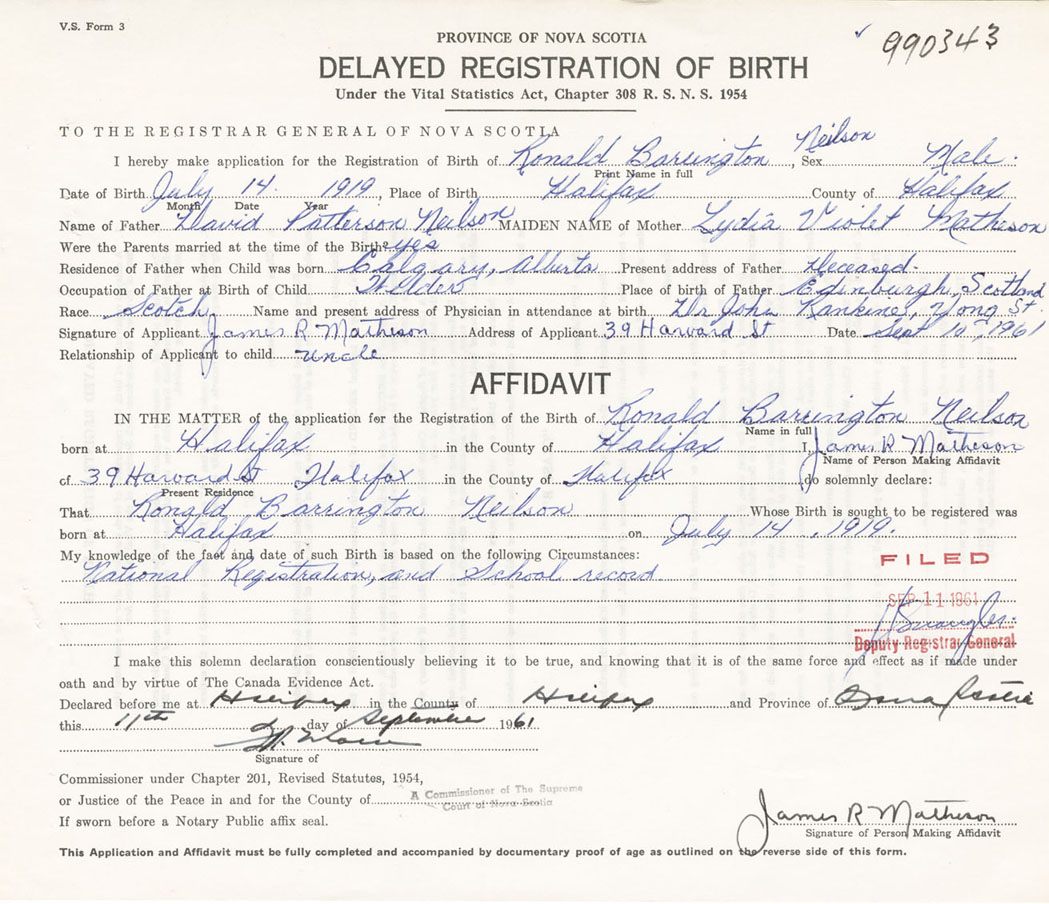 V.S. Form 3
PROVINCE OF NOVA SCOTIA
990343
DELAYED REGISTRATION OF BIRTH
Under the Vital Statistics Act, Chapter 308 R. S. N. S. 1954
TO THE REGISTRAR GENERAL OF NOVA SCOTIA
I hereby make application for the Registration of Birth of Ronald Barrington Neilson, Sex Male.
Print Name in full
Date of Birth July 14. 1919, Place of Birth Halifax County of Halifax
Month Date Year
Name of Father David Patterson Neilson MAIDEN NAME of Mother Lydia Violet Matheson
Were the Parents married at the time of the Birth? yes
Residence of Father when Child was born Calgary, Alberta Present address of Father Deceased.
Occupation of Father at Birth of Child Welder Place of birth of Father Edinburgh, Scotland
Race Scotch Name and present address of Physician in attendance at birth Dr John Rankine, Yong St.
Signature of Applicant James R Matheson Address of Applicant 39 Harvard St Date Sept 1961
Relationship of Applicant to child uncle
AFFIDAVIT
IN THE MATTER of the application for the Registration of the Birth of Ronald Barrington Neilson
Name in full
born at Halifax in the County of Halifax I, James R Matheson
Name of Person Making Affidavit
of 39 Harvard St Halifax in the County of Halifax do solemnly declare:
Present Residence
That Ronald Barrington Neilson Whose Birth is sought to be registered was
born at Halifax on July 14, 1919.
My knowledge of the fact and date of such Birth is based on the following Circumstances:
National Registration, and School record
FILED
SEP 11 1961
Deputy Registrar General
I make this solemn declaration conscientiously believing it to be true, and knowing that it is of the same force and effect as if made under
oath and by virtue of The Canada Evidence Act.
Declared before me at Halifax in the County of Halifax and Province of Nova Scotia
this 11th day of September 1961
Signature of
Commissioner under Chapter 201, Revised Statutes, 1954,
or Justice of the Peace in and for the County of A Commissioner of The Supreme
Court of Nova Scotia
If sworn before a Notary Public affix seal.
James R Matheson
Signature of Person Making Affidavit
This Application and Affidavit must be fully completed and accompanied by documentary proof of age as outlined on the reverse side of this form.